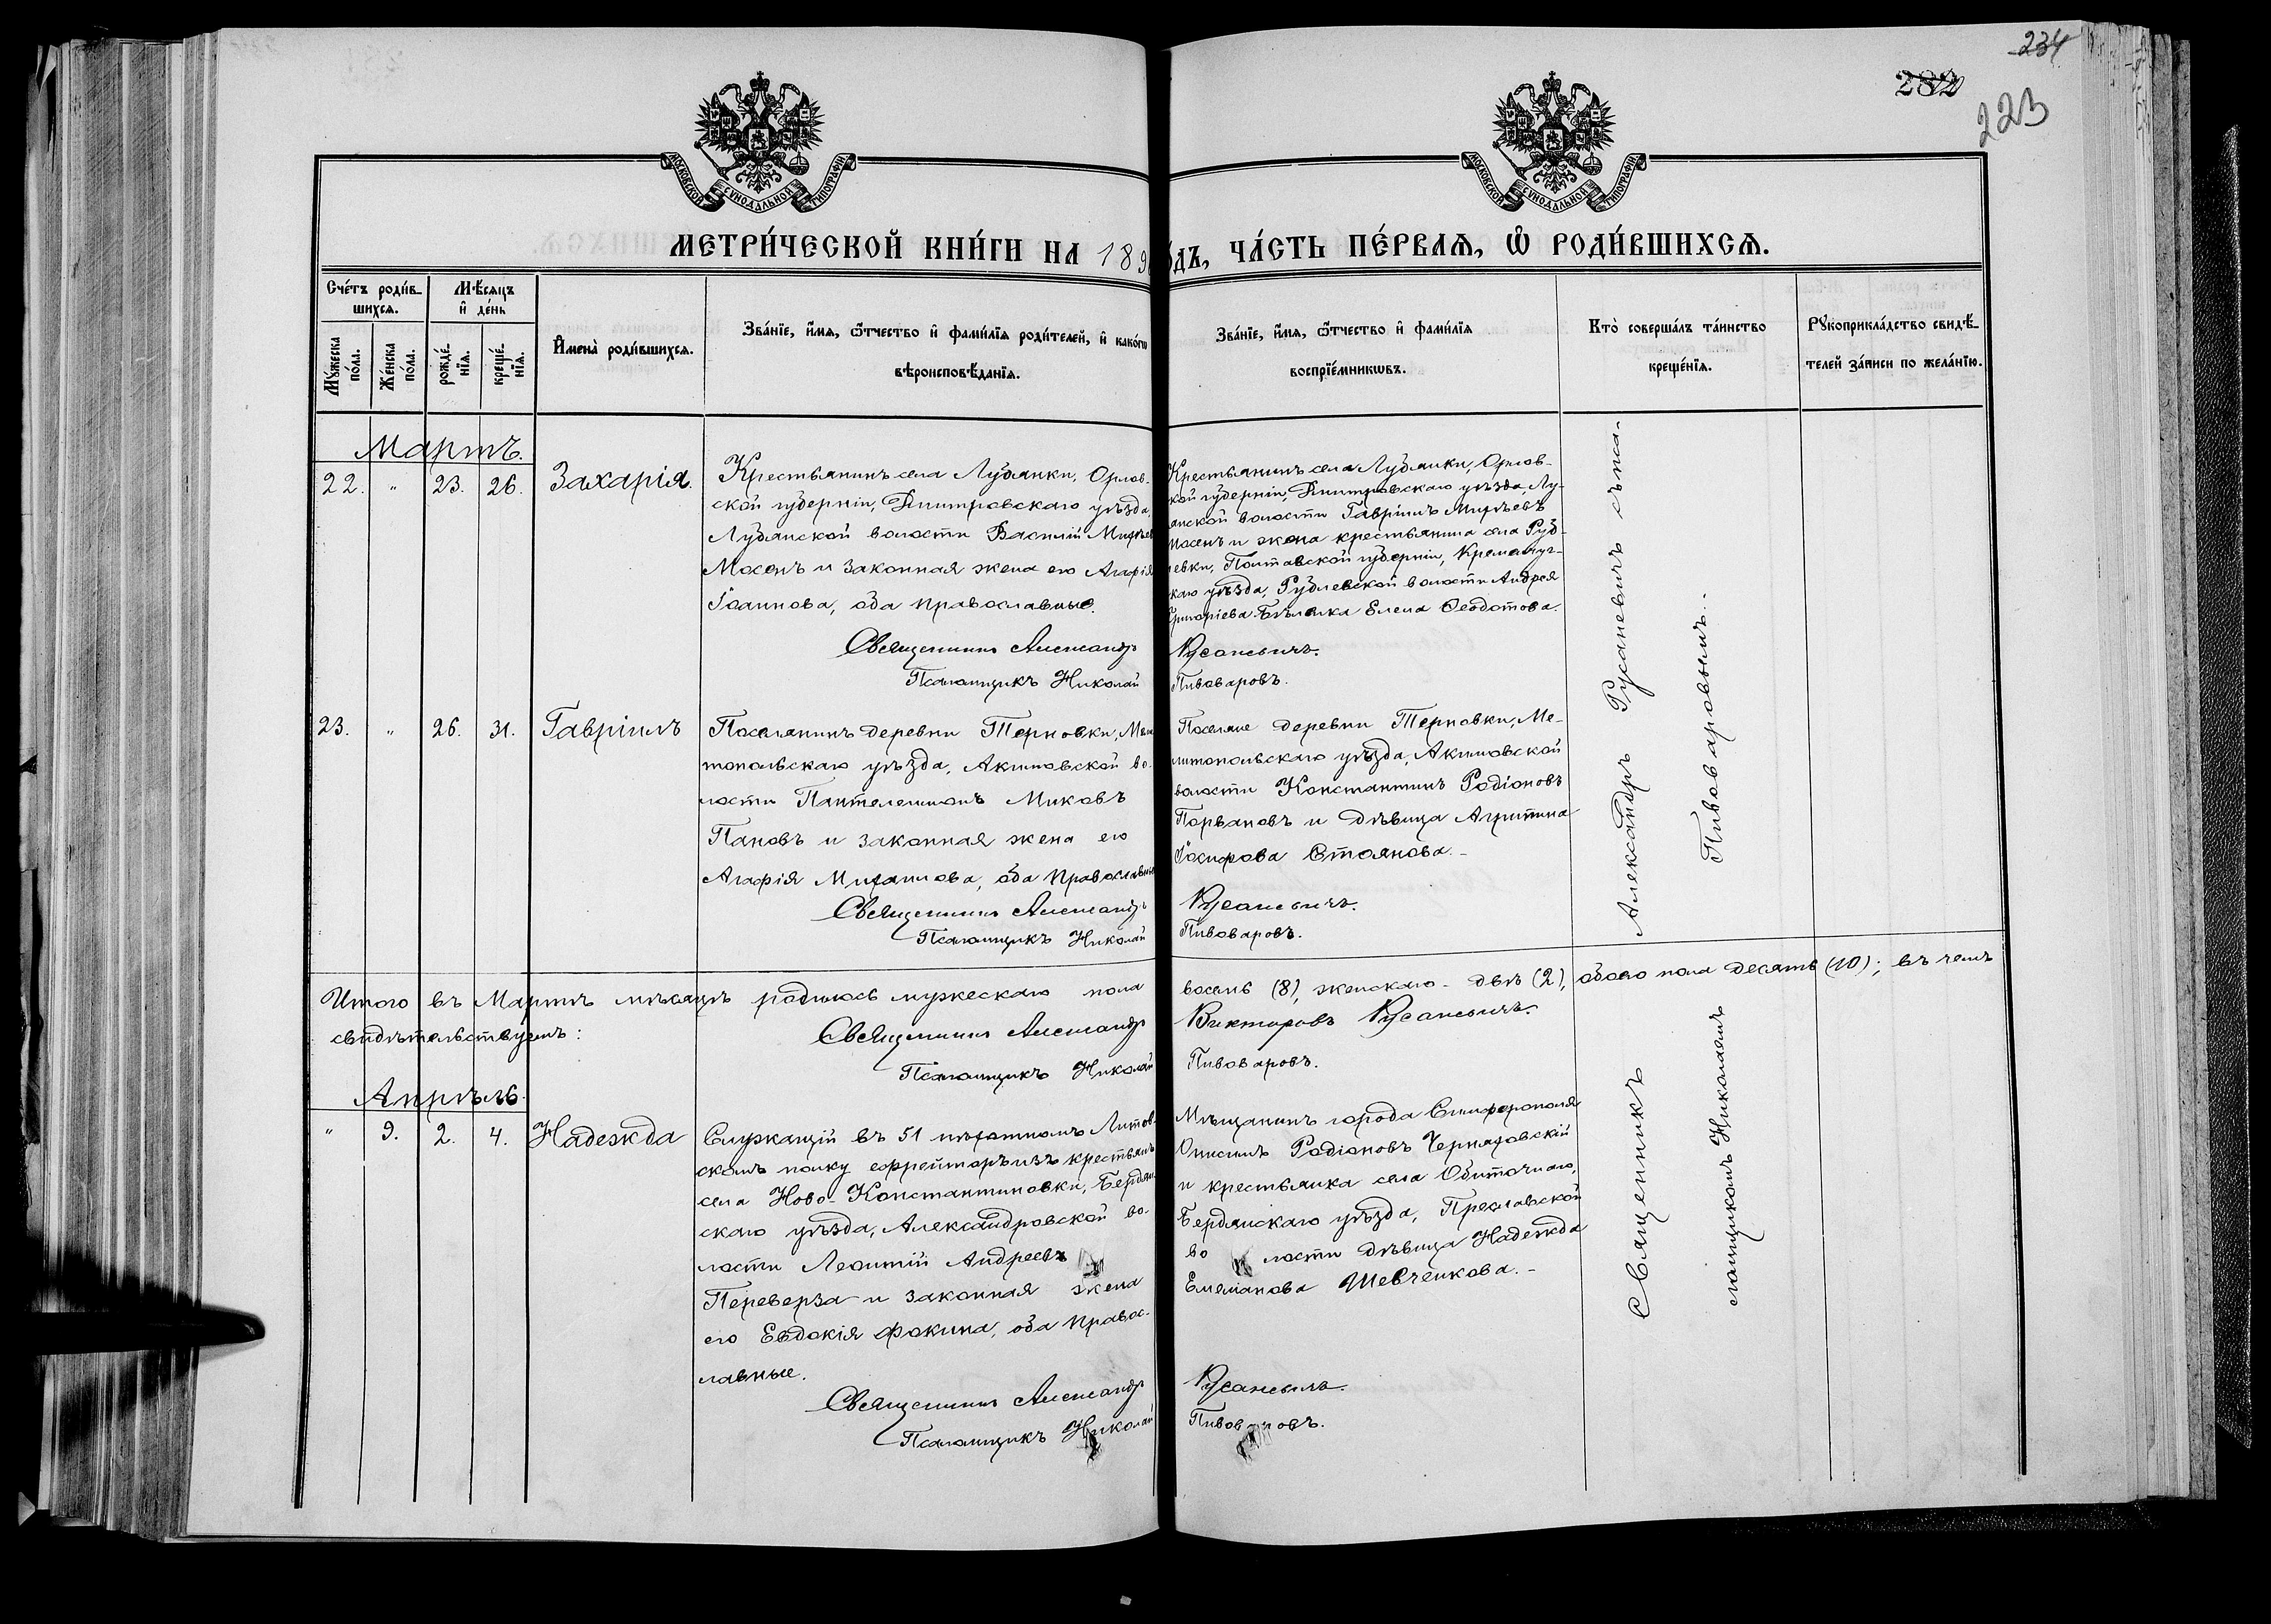 234
282
223
МОСКОВСКОЙ СѴНОДАЛЬНОЙ ТИПОГРАФІИ
МОСКОВСКОЙ СѴНОДАЛЬНОЙ ТИПОГРАФІИ
МЕТРИ́ЧЕСКОЙ КНИ́ГИ НА 189
ДЪ, ЧА́СТЬ ПЕ́РВАѦ, Ѽ РОДИ́ВШИХСѦ.
Сче́тъ роди́в-
шихсѧ.
Мѣ́сѧцъ
и҆ де́нь
Мꙋ́жеска
по́ла.
Же́нска
по́ла.
рожде́-
нїѧ.
креще́-
нїѧ.
И҆мена̀ роди́вшихсѧ.
Зва́нїе, и҆́мѧ, ѻ҆́тчество и҆ фами́лїѧ роди́телей, и҆ како́гѡ
вѣроисповѣ́данїѧ.
Зва́нїе, и҆́мѧ, ѻ҆́тчество и҆ фами́лїѧ
воспрїе́мникѡвъ.
Кто̀ соверша́лъ та́инство
креще́нїѧ.
Рꙋкоприкла́дство свидѣ́-
телей за́писи по жела́нїю.
Мартъ.
22. " 23. 26. Захарія.
Крестьянинъ села Лубянки, Орлов-
ской губерніи, Дмитровскаго уѣзда,
Лубянской волости Василій Михѣев
Мосенъ и законная жена его Агафія
Іоаннова, оба православные.
Священникъ Александръ
Псаломщикъ Николай
Крестьянинъ села Лубянки, Орлов-
кой губерніи, Дмитровскаго уѣзда, Лу-
янской волости Гавріилъ Михѣевъ
Мосенъ и жена крестьянина села Руб-
левки, Полтавской губерніи, Кременчуг-
каго уѣзда, Рублевской волости Андрея
Григоріева Елена Ѳеодотова.
Русаневичъ.
Пивоваровъ.
23. " 26. 31. Гавріилъ
Поселянинъ деревни Терновки, Мели
топольскаго уѣзда, Акимовской во-
лости Пантелеимонъ Миковъ
Пановъ и законная жена его
Агафія Михаилова, оба православные
Священникъ Александръ
Псаломщикъ Николай
Поселяне деревни Терновки, Ме-
литопольскаго уѣзда, Акимовской
волости Константинъ Родіоновъ
Порвановъ и дѣвица Агрипина
Іосифова Стоянова.-
Русаневичъ.
Пивоваровъ.
Александръ Русаневичъ съ пса-
Пивоваровымъ..
Итого въ Мартѣ мѣсяцѣ родилось мужескаго пола
восемь (8), женскаго - двѣ (2), обоего пола десять (10); въ чемъ
свидѣтельствуемъ:
Священникъ Александръ
Викторовъ Русаневичъ.
Псаломщикъ Николай
Пивоваровъ.
Апрѣль.
" 9. 2. 4. Надежда
Служащій въ 51 пѣхотномъ Литов-
скомъ полку ефрейторъ изъ крестьянъ
села Ново-Константиновки, Бердян
скаго уѣзда, Александровской во-
лости Леонтій Андреевъ
Переверза и законная жена
его Евдокія Фокина, оба правос-
лавные.
Священникъ Александръ
Псаломщикъ Николай
Мѣщанинъ города Симферополя
Онисимъ Родіоновъ Черняховскій
и крестьянка села Обиточнаго,
Бердянскаго уѣзда, Преславской
во лости дѣвица Надежда
Емеліанова Шевченкова.-
Русаневичъ.
Пивоваровъ.
Священникъ
ломщикомъ Николаемъ